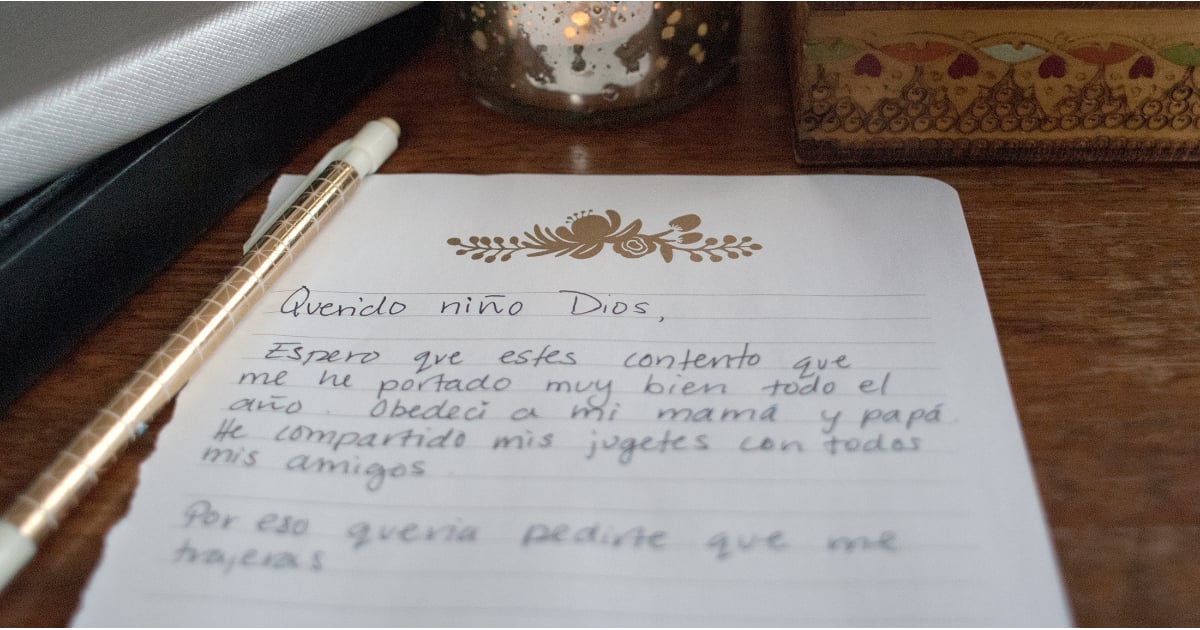 Querido niño Dios,
Espero que estes contento que
me he portado muy bien todo el
año. Obedecí a mi mamá y papá.
He compartido mis jugetes con todos
mis amigos.
Por eso queria pedirte que me
trajeras